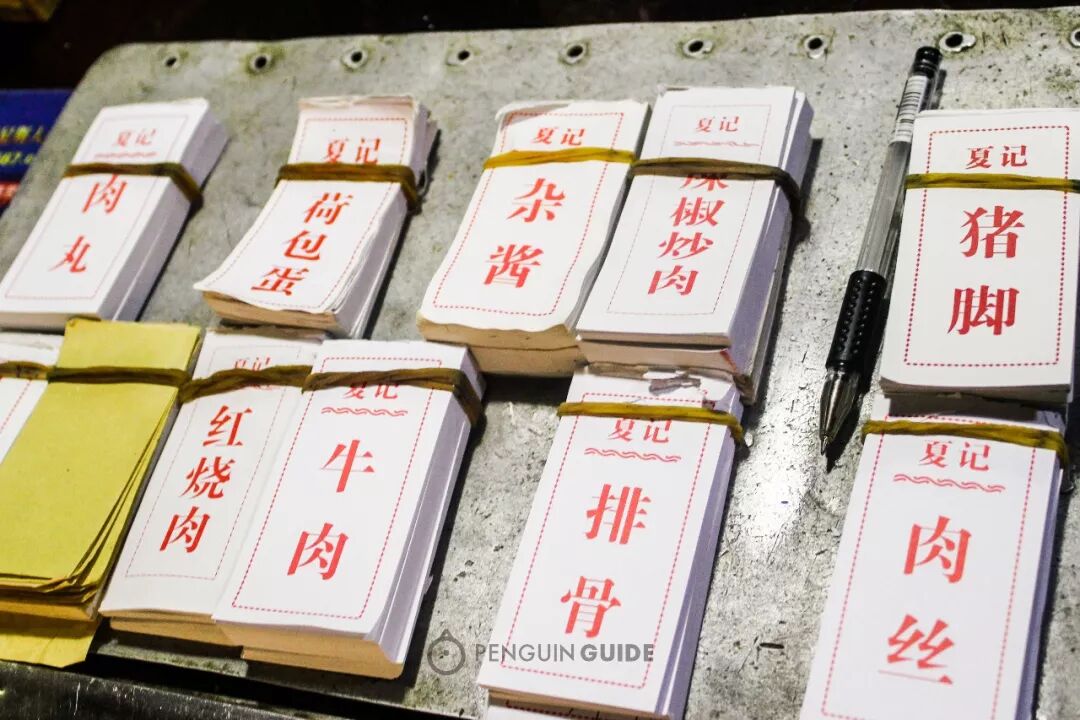 夏记
肉丸
夏记
荷包蛋
夏记
杂酱
夏记
辣椒炒肉
夏记
猪脚
夏记
红烧肉
夏记
牛肉
夏记
排骨
夏记
肉丝
PENGUIN GUIDE